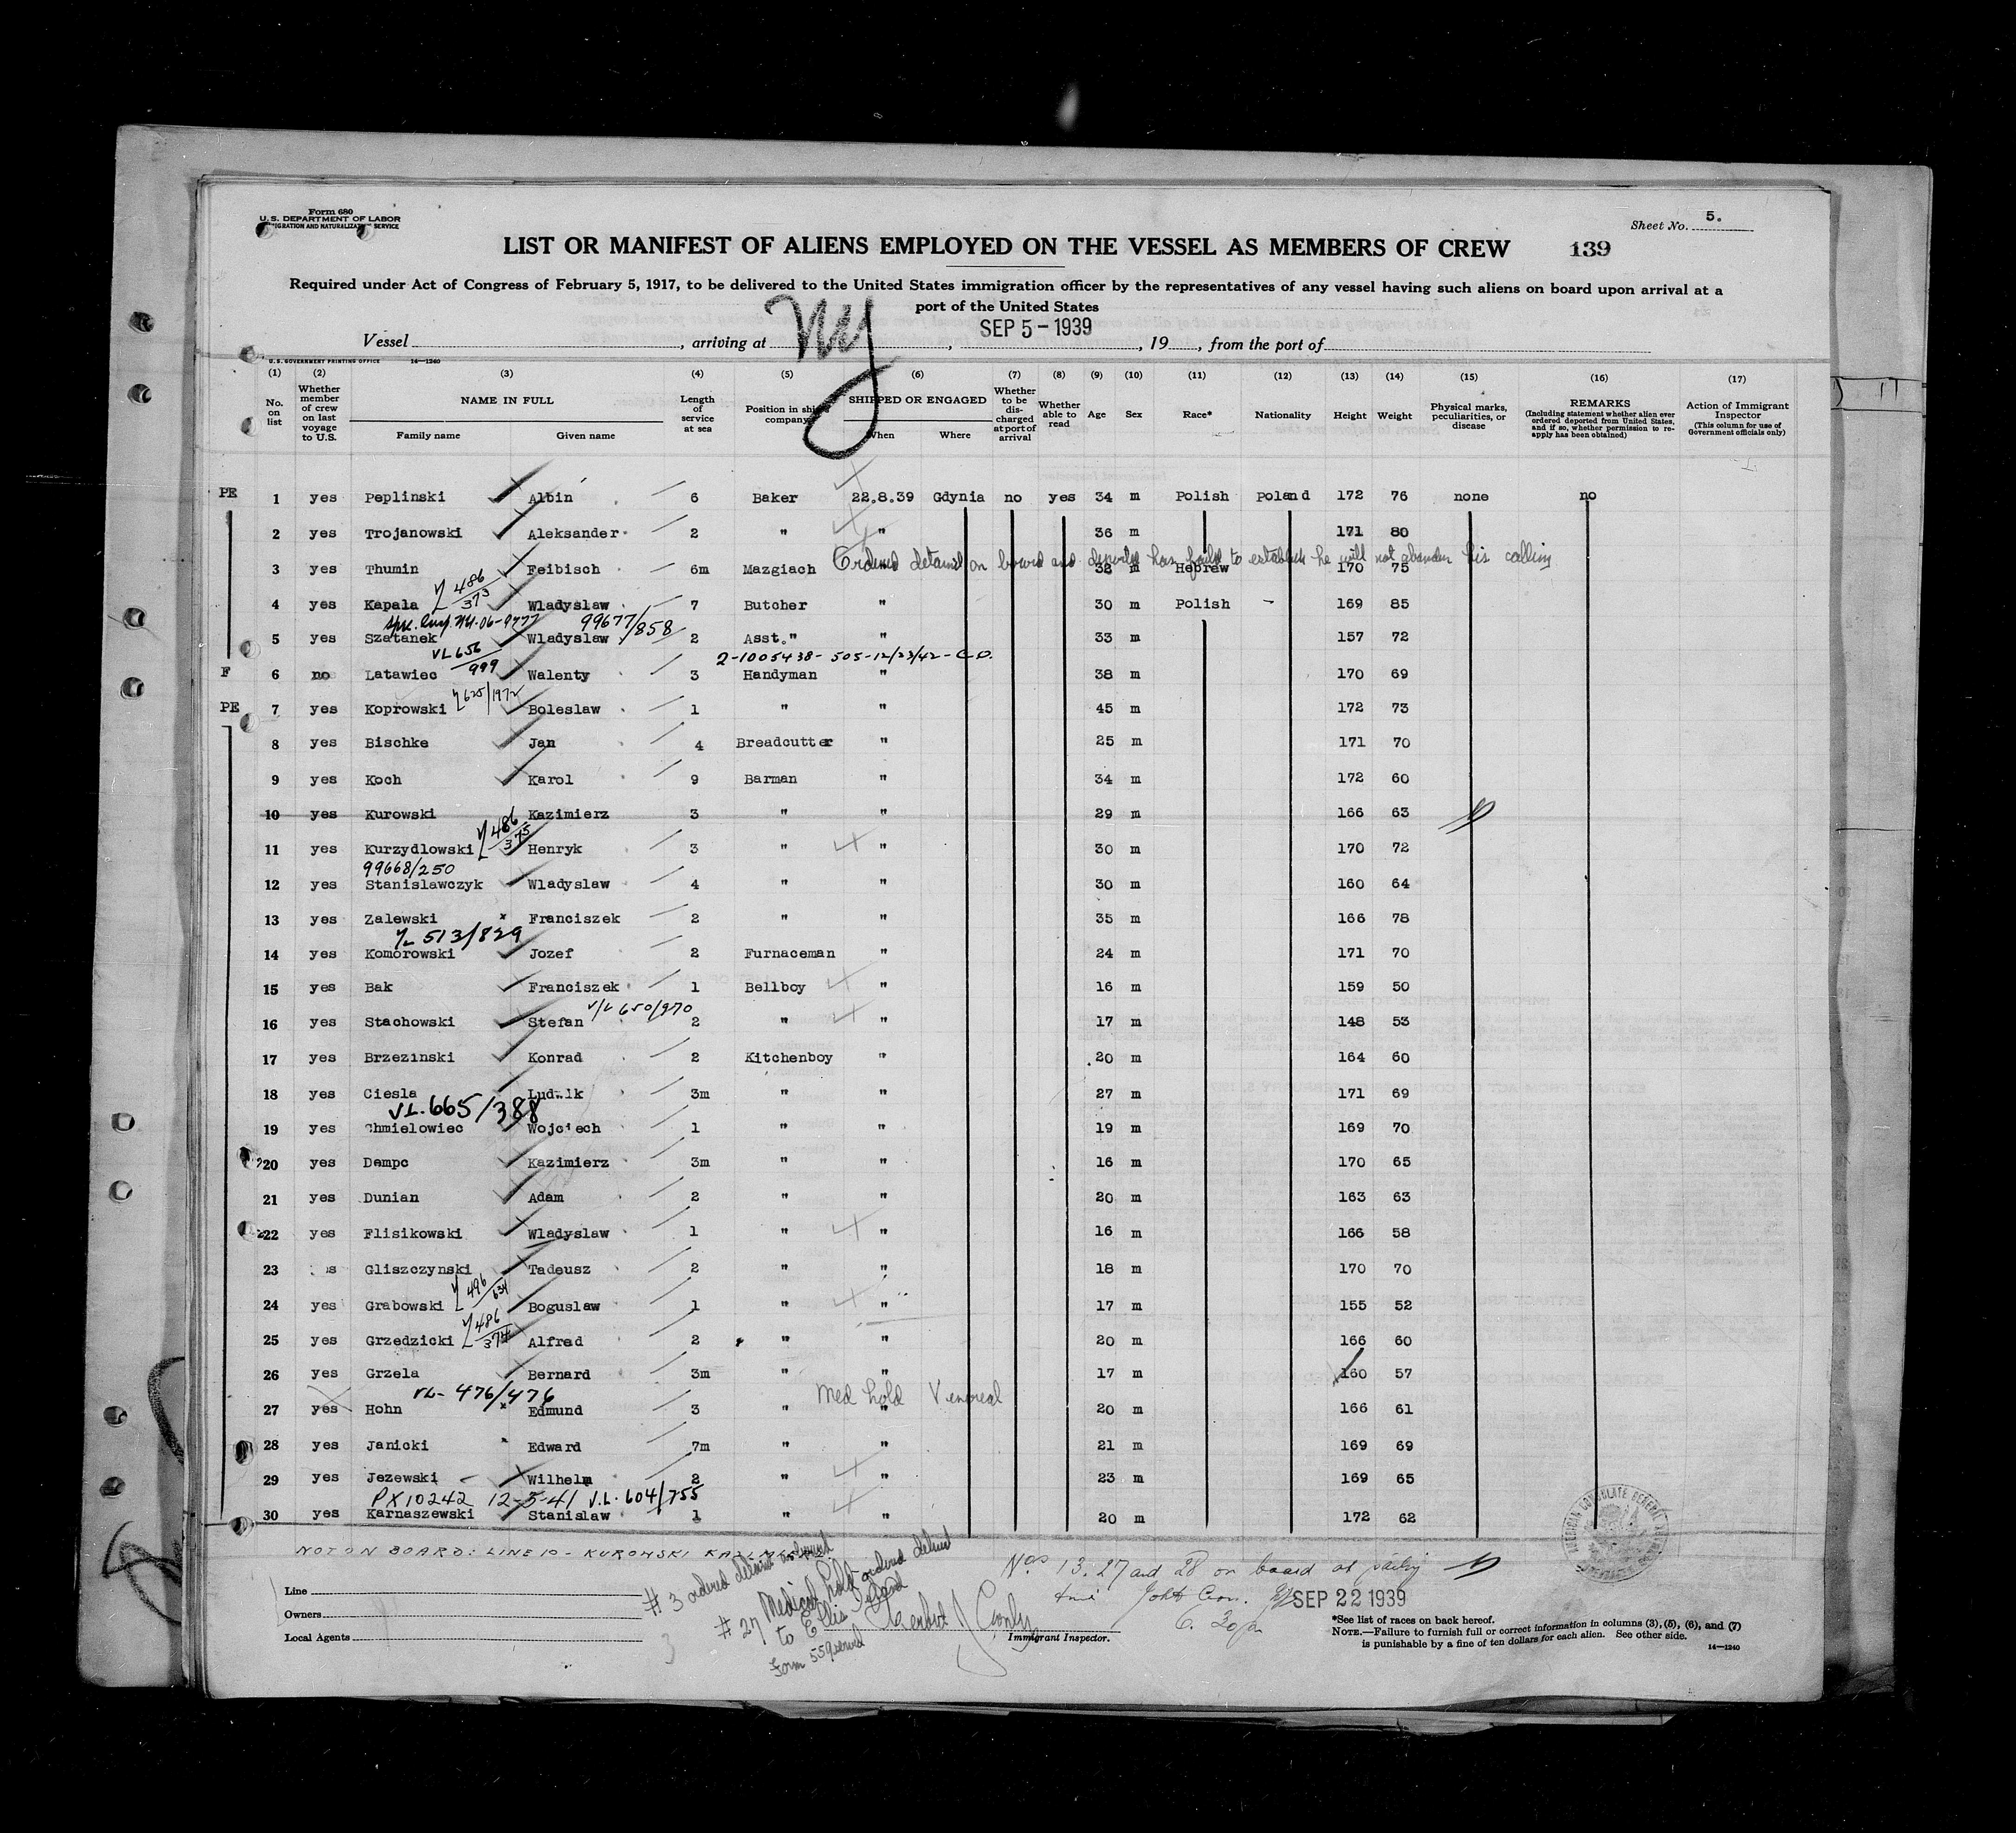 Form 680
U. S. DEPARTMENT OF LABOR
IMMIGRATION AND NATURALIZATION SERVICE
Sheet No. 5.
LIST OR MANIFEST OF ALIENS EMPLOYED ON THE VESSEL AS MEMBERS OF CREW 139
Required under Act of Congress of February 5, 1917, to be delivered to the United States immigration officer by the representatives of any vessel having such aliens on board upon arrival at a
port of the United States
Vessel , arriving at NY , SEP 5 - 1939 , 19 , from the port of
U. S. GOVERNMENT PRINTING OFFICE 14—1240
(1) (2) (3) (4) (5) (6) (7) (8) (9) (10) (11) (12) (13) (14) (15) (16) (17)
No. on list
Whether member of crew on last voyage to U.S.
NAME IN FULL
Family name Given name
Length of service at sea
Position in ship's company
SHIPPED OR ENGAGED
When Where
Whether to be discharged at port of arrival
Whether able to read
Age Sex Race* Nationality Height Weight
Physical marks, peculiarities, or disease
REMARKS
(Including statement whether alien ever ordered deported from United States, and if so, whether permission to reapply has been obtained)
Action of Immigrant Inspector
(This column for use of Government officials only)
PE 1 yes Peplinski Albin 6 Baker 22.8.39 Gdynia no yes 34 m Polish Poland 172 76 none no
2 yes Trojanowski Aleksander 2 " " 36 m 171 80
Ordered detained on board and deported has failed to establish he will not abandon his calling
3 yes Thumin Feibisch 6m Mazgiach 38 m Hebrew 170 75
486/373
4 yes Kapala Wladyslaw 7 Butcher " 30 m Polish - 169 85
99677/858
5 yes Szatanek Wladyslaw 2 Asst." " 33 m 157 72
VL 656/999 2-1005438- 505-12/23/42- C.O.
F 6 no Latawiec Walenty 3 Handyman " 38 m 170 69
625/1972
PE 7 yes Koprowski Boleslaw 1 " " 45 m 172 73
8 yes Bischke Jan 4 Breadcutter " 25 m 171 70
9 yes Koch Karol 9 Barman " 34 m 172 60
10 yes Kurowski Kazimierz 3 " " 29 m 166 63
486/375
11 yes Kurzydlowski Henryk 3 " " 30 m 170 72
99668/250
12 yes Stanislawczyk Wladyslaw 4 " " 30 m 160 64
13 yes Zalewski Franciszek 2 " " 35 m 166 78
513/829
14 yes Komorowski Jozef 2 Furnaceman " 24 m 171 70
15 yes Bak Franciszek 1 Bellboy " 16 m 159 50
V/L 650/970
16 yes Stachowski Stefan 2 " " 17 m 148 53
17 yes Brzezinski Konrad 2 Kitchenboy " 20 m 164 60
18 yes Ciesla Ludwik 3m " " 27 m 171 69
VL.665/388
19 yes Chmielowiec Wojciech 1 " " 19 m 169 70
20 yes Dempc Kazimierz 3m " " 16 m 170 65
21 yes Dunian Adam 2 " " 20 m 163 63
22 yes Flisikowski Wladyslaw 1 " " 16 m 166 58
23 yes Gliszczynski Tadeusz 2 " " 18 m 170 70
496/634
24 yes Grabowski Boguslaw 1 " " 17 m 155 52
486/374
25 yes Grzedzicki Alfred 2 " " 20 m 166 60
26 yes Grzela Bernard 3m " " 17 m 160 57
VL- 476/476 Med hold Venereal
27 yes Hohn Edmund 3 " " 20 m 166 61
28 yes Janicki Edward 7m " " 21 m 169 69
29 yes Jezewski Wilhelm 2 " " 23 m 169 65
PX10242 12-5-41 V.L. 604/755
30 yes Karnaszewski Stanislaw 1 " " 20 m 172 62
NOT ON BOARD: LINE 10 - KUROWSKI KAZIMIERZ
Line
Owners
Local Agents
# 3 ordered detained on board
# 27 Medical hold ordered detained
to Ellis Island
Form 559 served
Immigrant Inspector.
Nos 13. 27 and 28 on board at
SEP 22 1939
AMERICAN CONSULATE GENERAL
*See list of races on back hereof.
NOTE.—Failure to furnish full or correct information in columns (3), (5), (6), and (7)
is punishable by a fine of ten dollars for each alien. See other side.
14—1240